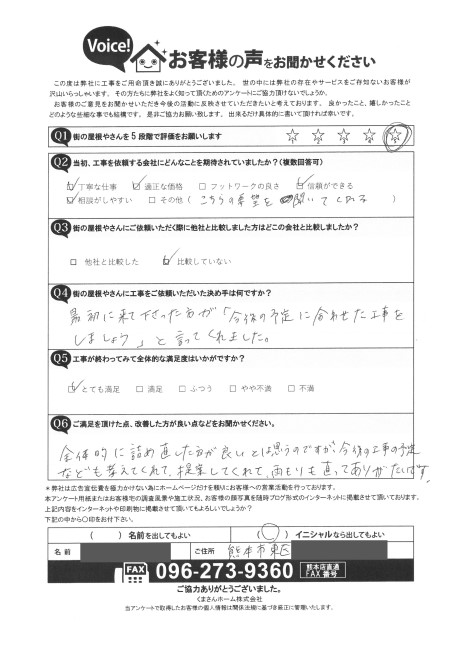 Voice!
お客様の声をお聞かせください
この度は弊社に工事をご用命頂き誠にありがとうございました。 世の中には弊社の存在やサービスをご存知ないお客様が
沢山いらっしゃいます。 その方たちに弊社をよく知って頂くためのアンケートにご協力頂けないでしょうか。
お客様のご意見をお聞かせいただき今後の活動に反映させていただきたいと考えております。 良かったこと、嬉しかったこと
どのような些細な事でも結構です。 是非ご協力お願い致します。 出来るだけ具体的に書いて頂ければ幸いです。
Q1 街の屋根やさんを5段階で評価をお願いします ☆ ☆ ☆ ☆ ☆
Q2 当初、工事を依頼する会社にどんなことを期待されていましたか？(複数回答可)
☑ 丁寧な仕事 ☑ 適正な価格 □ フットワークの良さ ☑ 信頼ができる
☑ 相談がしやすい □ その他 ( こちらの希望を聞いてくれる )
Q3 街の屋根やさんにご依頼いただく際に他社と比較しました方はどこの会社と比較しましたか？
□ 他社と比較した ☑ 比較していない
Q4 街の屋根やさんに工事をご依頼いただいた決め手は何ですか？
最初に来て下さった方が「今後の予定に合わせた工事を
しましょう」と言ってくれました。
Q5 工事が終わってみて全体的な満足度はいかがですか？
☑ とても満足 □ 満足 □ ふつう □ やや不満 □ 不満
Q6 ご満足を頂けた点、改善した方が良い点などをお聞かせください。
全体的に詰め直した方が良いとは思うのですが今後の工事の予定
なども考えてくれて、提案してくれて、雨もりも直ってありがたいです。
＊弊社は広告宣伝費を極力かけない為にホームページだけを頼りにお客様への営業活動を行っております。
本アンケート用紙またはお客様宅の調査風景や施工状況、お客様の顔写真を随時ブログ形式のインターネットに掲載させて頂いております。
上記内容をインターネットや印刷物に掲載させて頂いてもよろしいでしょうか？
下記の中から〇印をお付下さい。
( ) 名前を出してもよい ( ○ ) イニシャルなら出してもよい
名 前 ご住所 熊本市東区
FAX 096-273-9360 熊本店直通 FAX番号
ご協力ありがとうございました。
くまさんホーム株式会社
当アンケートで取得したお客様の個人情報は関係法規に基づき厳正に管理いたします。